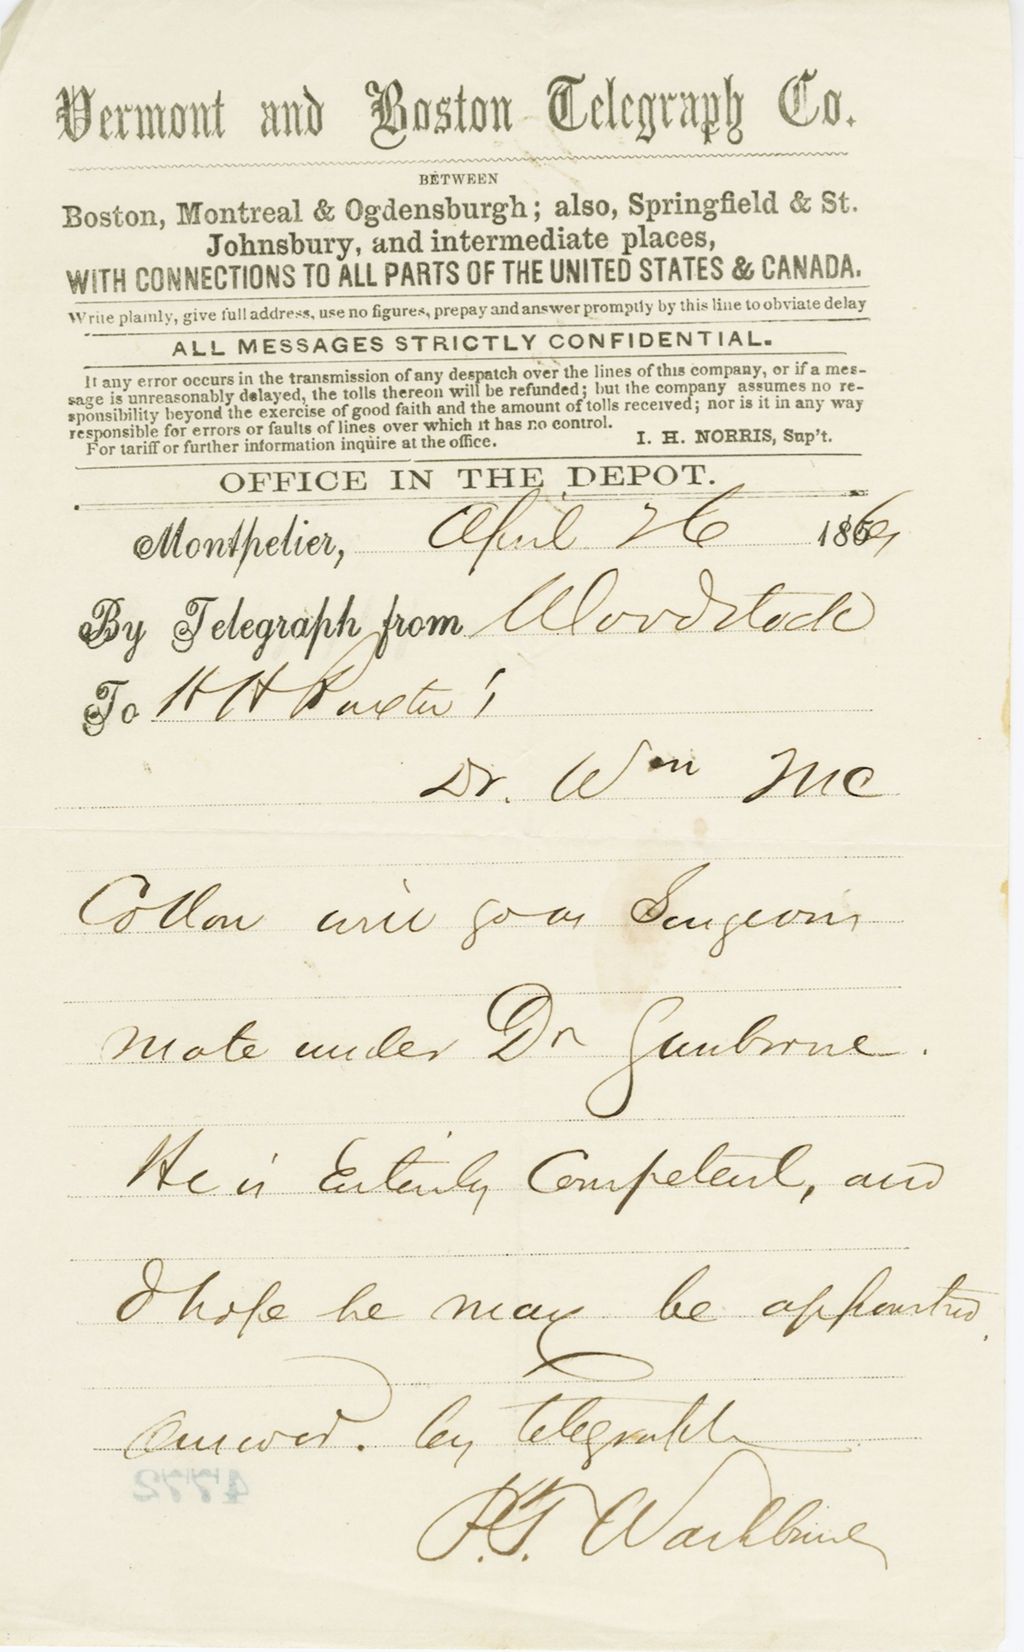 Vermont and Boston Telegraph Co.
BETWEEN
Boston, Montreal & Ogdensburgh; also, Springfield & St.
Johnsbury, and intermediate places,
WITH CONNECTIONS TO ALL PARTS OF THE UNITED STATES & CANADA.
Write plainly, give full address, use no figures, prepay and answer promptly by this line to obviate delay
ALL MESSAGES STRICTLY CONFIDENTIAL.
If any error occurs in the transmission of any despatch over the lines of this company, or if a mes-
sage is unreasonably delayed, the tolls thereon will be refunded; but the company assumes no re-
sponsibility beyond the exercise of good faith and the amount of tolls received; nor is it in any way
responsible for errors or faults of lines over which it has no control.
For tariff or further information inquire at the office.
I. H. NORRIS, Sup't.
OFFICE IN THE DEPOT.
Montpelier, April 26 186
By Telegraph from Woodstock
To H H Baxter
Dr. Wm Mc
Collom will go as Surgeons
mate under Dr
He is Entirely Competent, and
I hope he may be appointed
answer. by telegraph
P.T. Washburne
4772